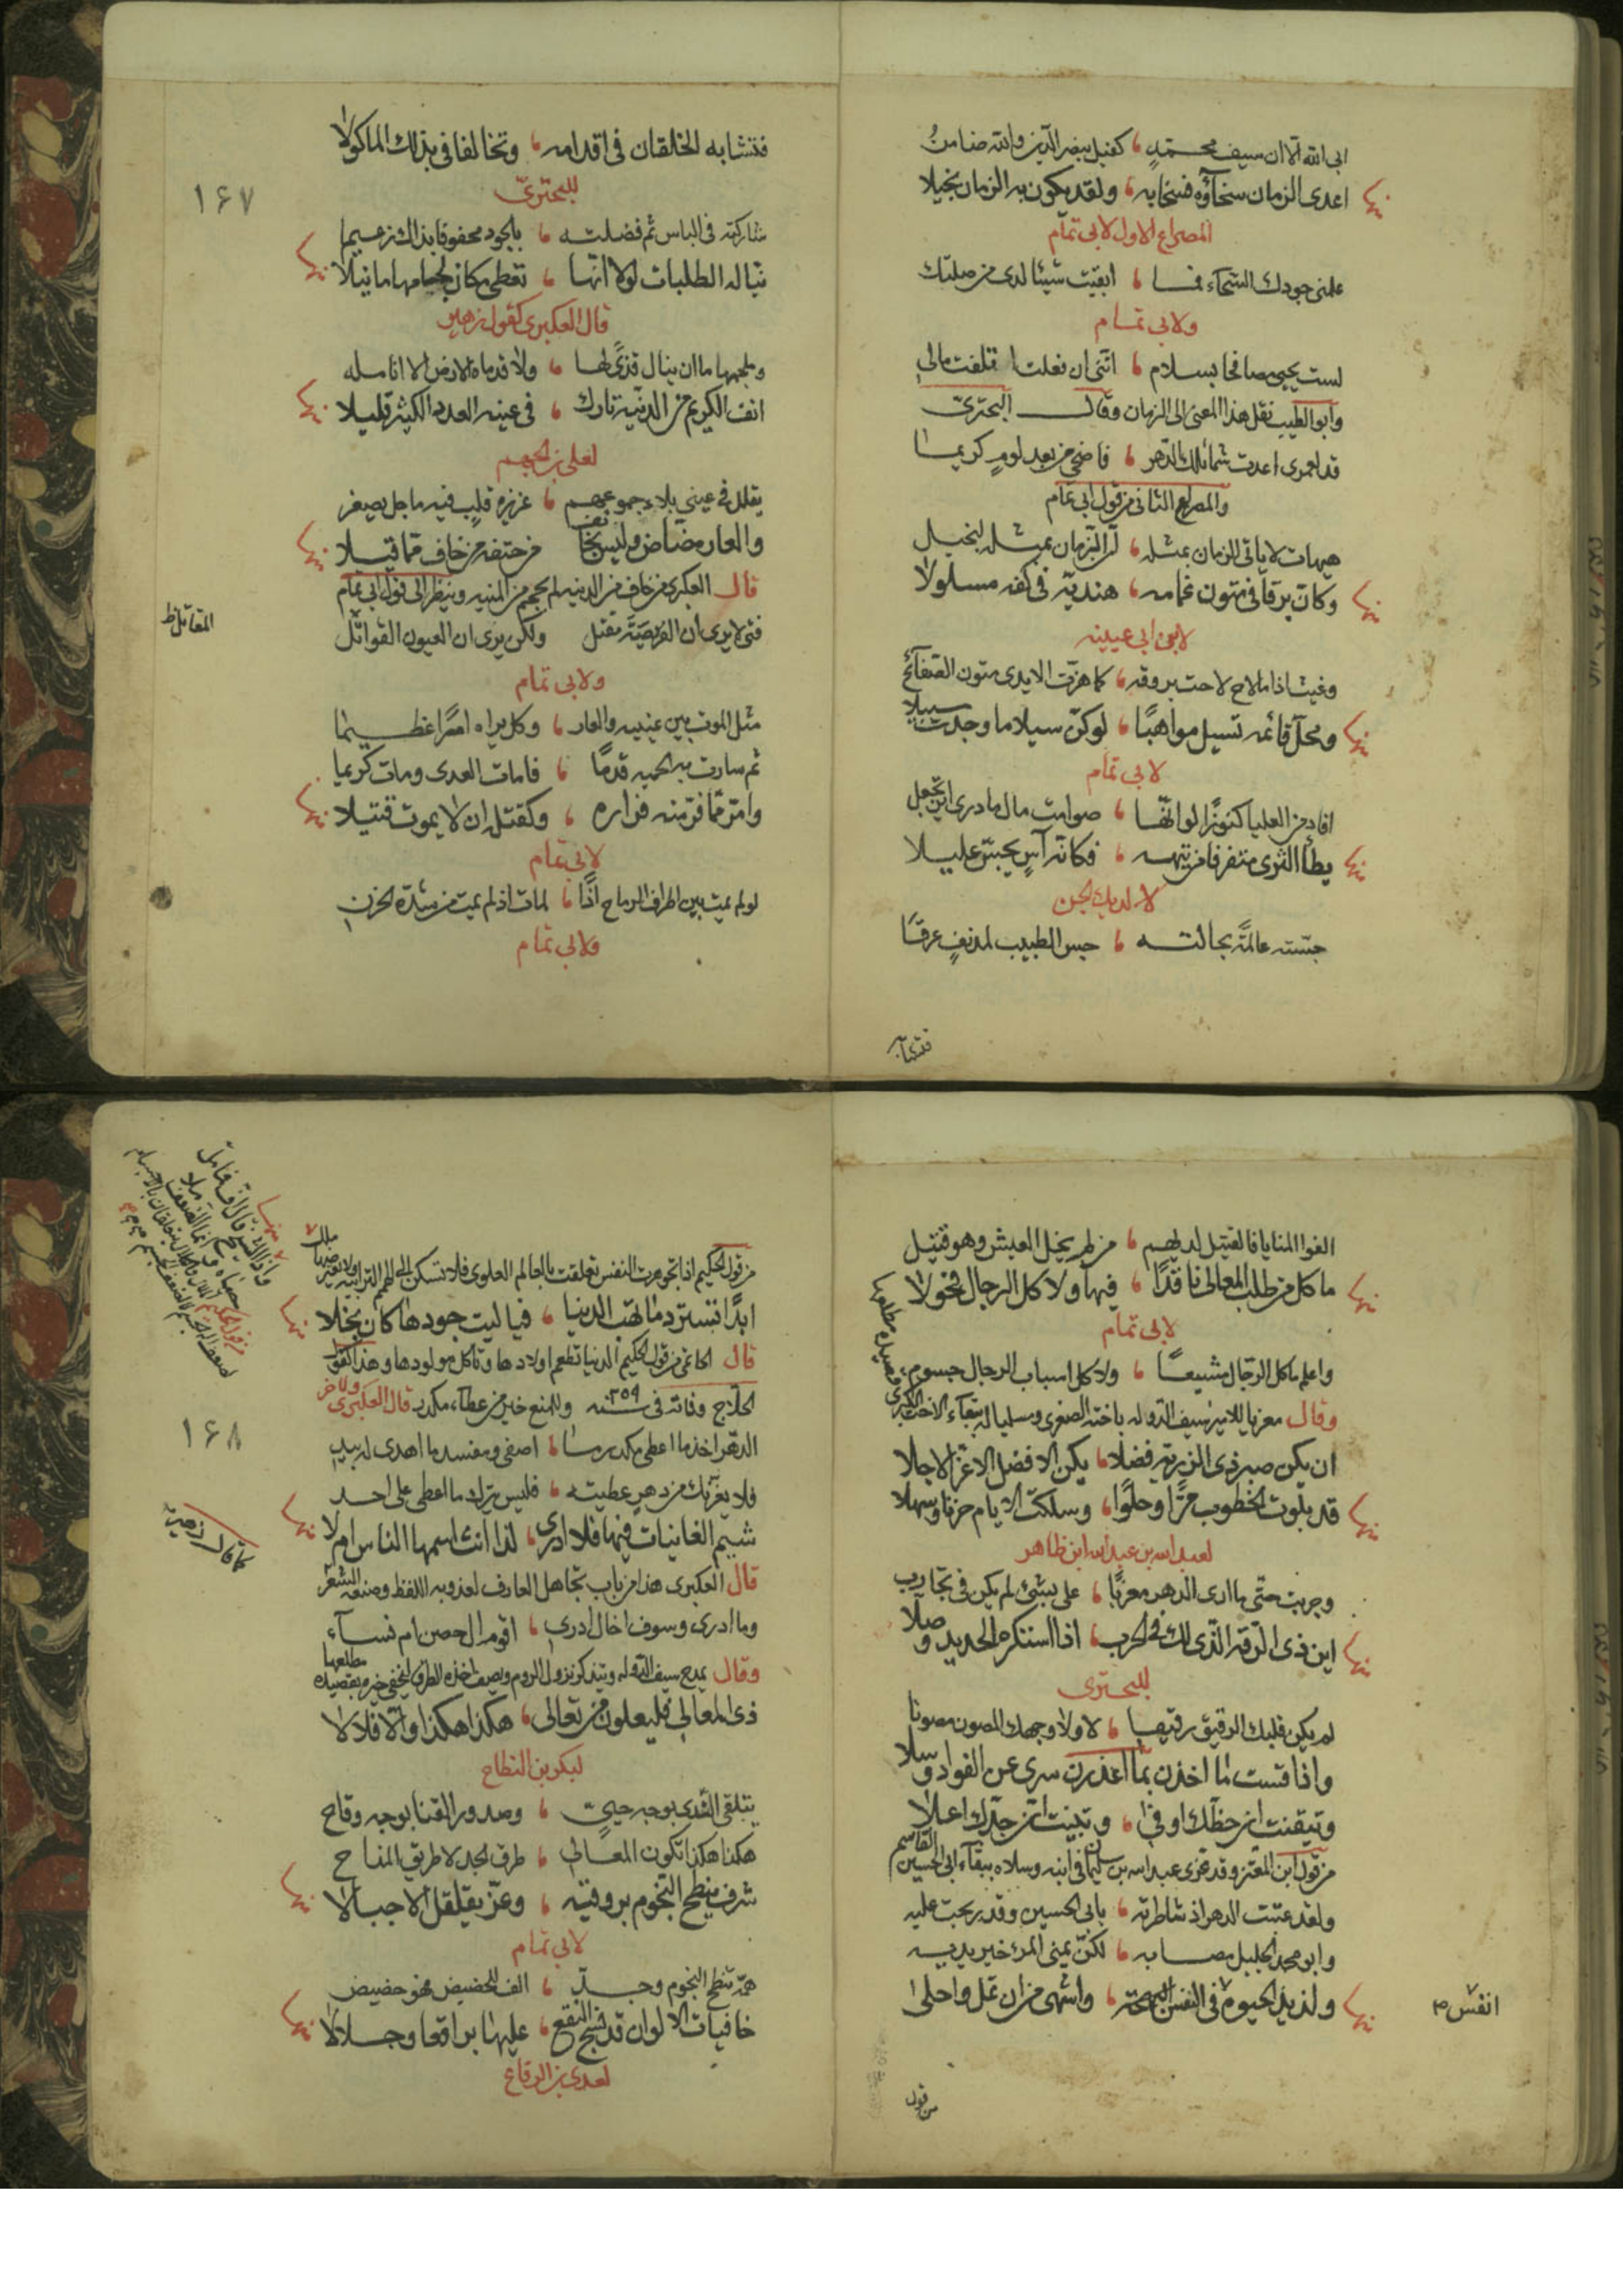 ابى الله الا ان سيف محمد كفيل بنصر الدين والله ضامن
اعدى الزمان سخآؤه فسخابه ولقد يكون به الزمان بخيلا
المصراع الاول لابى تمام
علمنى جودك السماء فما ابقيت شيئا لدى من صلتك
ولابى تمام
لست يحيى مصافحا بسلام اننى ان فعلت اتلفت مالى
وابو الطيب نقل هذا المعنى الى الزمان وقال البحترى
قد لعمرى اعدت شمائلك الدهر فاضحى من بعد لوم كريما
والمصراع الثانى من قول ابى تمام
هيهات لا ياتى الزمان بمثله ان الزمان بمثله لبخيل
وكان برقا فى متون غمامه هنديه فى كفه مسلولا
لابن ابى عيينه
وغيث اذا ما لاح لاحت بروقه كما هزت الايدى متون الصفآئح
ومحل قائمه تسيل مواهبا لو كن سيلا ما وجدت سبيلا
لابى تمام
افاد من العليا كنوزا لو انها صوامت مال ما درى اين تجعل
يطأ الثرى مترفقا من تيهه فكانه آس يجس عليلا
لا لديك الجن
جسته عالمة بحالته جس الطبيب لمدنف عرقا
فتشابه
فتشابه الخلقان فى اقدامه وتخالفا فى بذلك الماكولا
١٦٧
للبحترى
شاركته فى الباس ثم فضلته بالجود محفوفا بذاك زعيما
نياله الطلبات لولا انها تعطى مكان لجامها ما نيلا
قال العكبرى كقول زهير
وملجمها ما ان ينال قذالها ولا قدماه الارض الا انامله
انف الكريم من الدنية تارك فى عينه العدد الكثير قليلا
لعلى بن الجهم
يقلل فى عينى بلاء جموعهم غريزة قلب فيه ما جل يصغر
والعار مضاض وليس بخائف من حتفه من خاف مما قيلا
قال العكبرى من خاف من الدنيه لم يحجم من المنيه وينظر الى قول ابى تمام
فتى لا يرى ان الفريصة مقتل ولكن يرى ان العيون القواتل
المقاتل ظ
ولابى تمام
مثل الموت بين عينيه والعار وكل يراه امرا عظيما
ثم سارت به الحميه قدما فامات العدى ومات كريما
وامر مما فر منه فراره وكقتله ان لا يموت قتيلا
لابى تمام
لو لم يمت بين اطراف الرماح اذا لمات اذ لم يمت من شدة الحزن
ولابى تمام
الفوا المنايا فالقتيل لديهم من لم يخل العيش وهو قتيل
ما كل من طلب المعالى نافذا فيها ولا كل الرجال فحولا
لابى تمام
واعلم ما كل الرجال مشيعا ولا كل اسباب الرجال جسوم
وقال معزيا للامير سيف الدوله باخته الصغرى ومسليا له ببقآء الاخت الكبرى
ان يكن صبر ذى الرزية فضلا يكن الافضل الاعز الاجلا
قد بلوت الخطوب مرا وحلوا وسلكت الايام حزنا وسهلا
لعبد الله بن عبد الله ابن طاهر
وجربت حتى ما ارى الدهر مغربا على بشئ لم يكن فى تجارب
اين ذى الرقة التى لك فى الحرب اذا استكره الحديد وصلا
للبحترى
لم يكن قلبك الرقيق رقيقا لا ولا وجهك المصون مصونا
واذا قست ما اخذن بما اغدرن سرى عن الفواد وسلا
وتيقنت ان حظك اوفى وتبينت ان جدك اعلا
من قول ابن المعتز وقد عزى عبد الله بن سليمان فى ابنه وسلاه ببقآء ابى الحسين القاسم
ولقد عتبت الدهر اذ شاطرته بابى الحسين وقد ربحت عليه
وابو محمد الجليل مصابه لكن يمنى المرء خير يديه
ولذيذ الحيوة فى النفس واشهى من ان تمل واحلى
انفس
من قول
من قول الحكيم اذا تجوهرت النفس تعلقت بالعالم العلوى فلا تسكن الى الهم الترابيه
ابدا تسترد ما تهب الدنيا فيا ليت جودها كان بخلا
قال الحاتمى من قول الحكيم الدنيا تطعم اولادها وتاكل مولودها وهذا القول
الحلاج وفاته فى سنه ٣٥٩ وللمنع خير من عطآء مكدر قال العكبرى ولاخر
١٦٨
الدهر اخذ ما اعطى مكدر ما اصفى ومفسد ما اهدى له بيد
فلا يغرنك من دهر عطيته فليس يترك ما اعطى على احد
شيم الغانيات فيها فلا ادرى لذا انث اسمها الناس ام لا
كما قال زهير
قال العكبرى هذا من باب تجاهل العارف لعذوبه اللفظ وصنعه الشعر
وما ادرى وسوف اخال ادرى اقوم ال حصن ام نسآء
وقال يمدح سيف الدوله ويذكر نزول الروم مطلعها
ذى المعالى فليعلون من تعالى هكذا هكذا والا فلا لا
لبكر بن النطاح
يتلقى الندى بوجه حيى وصدور القنا بوجه وقاح
هكذا هكذا تكون المعالى طرق الجد لا طريق المزاح
شرف ينطح النجوم بروقيه وعز يقلقل الاجبالا
لابى تمام
همه تنطح النجوم وجد الف للحضيض فهو حضيض
خافيات الالوان قد نسج النقع عليها براقعا وجلالا
لعدى بن الرقاع